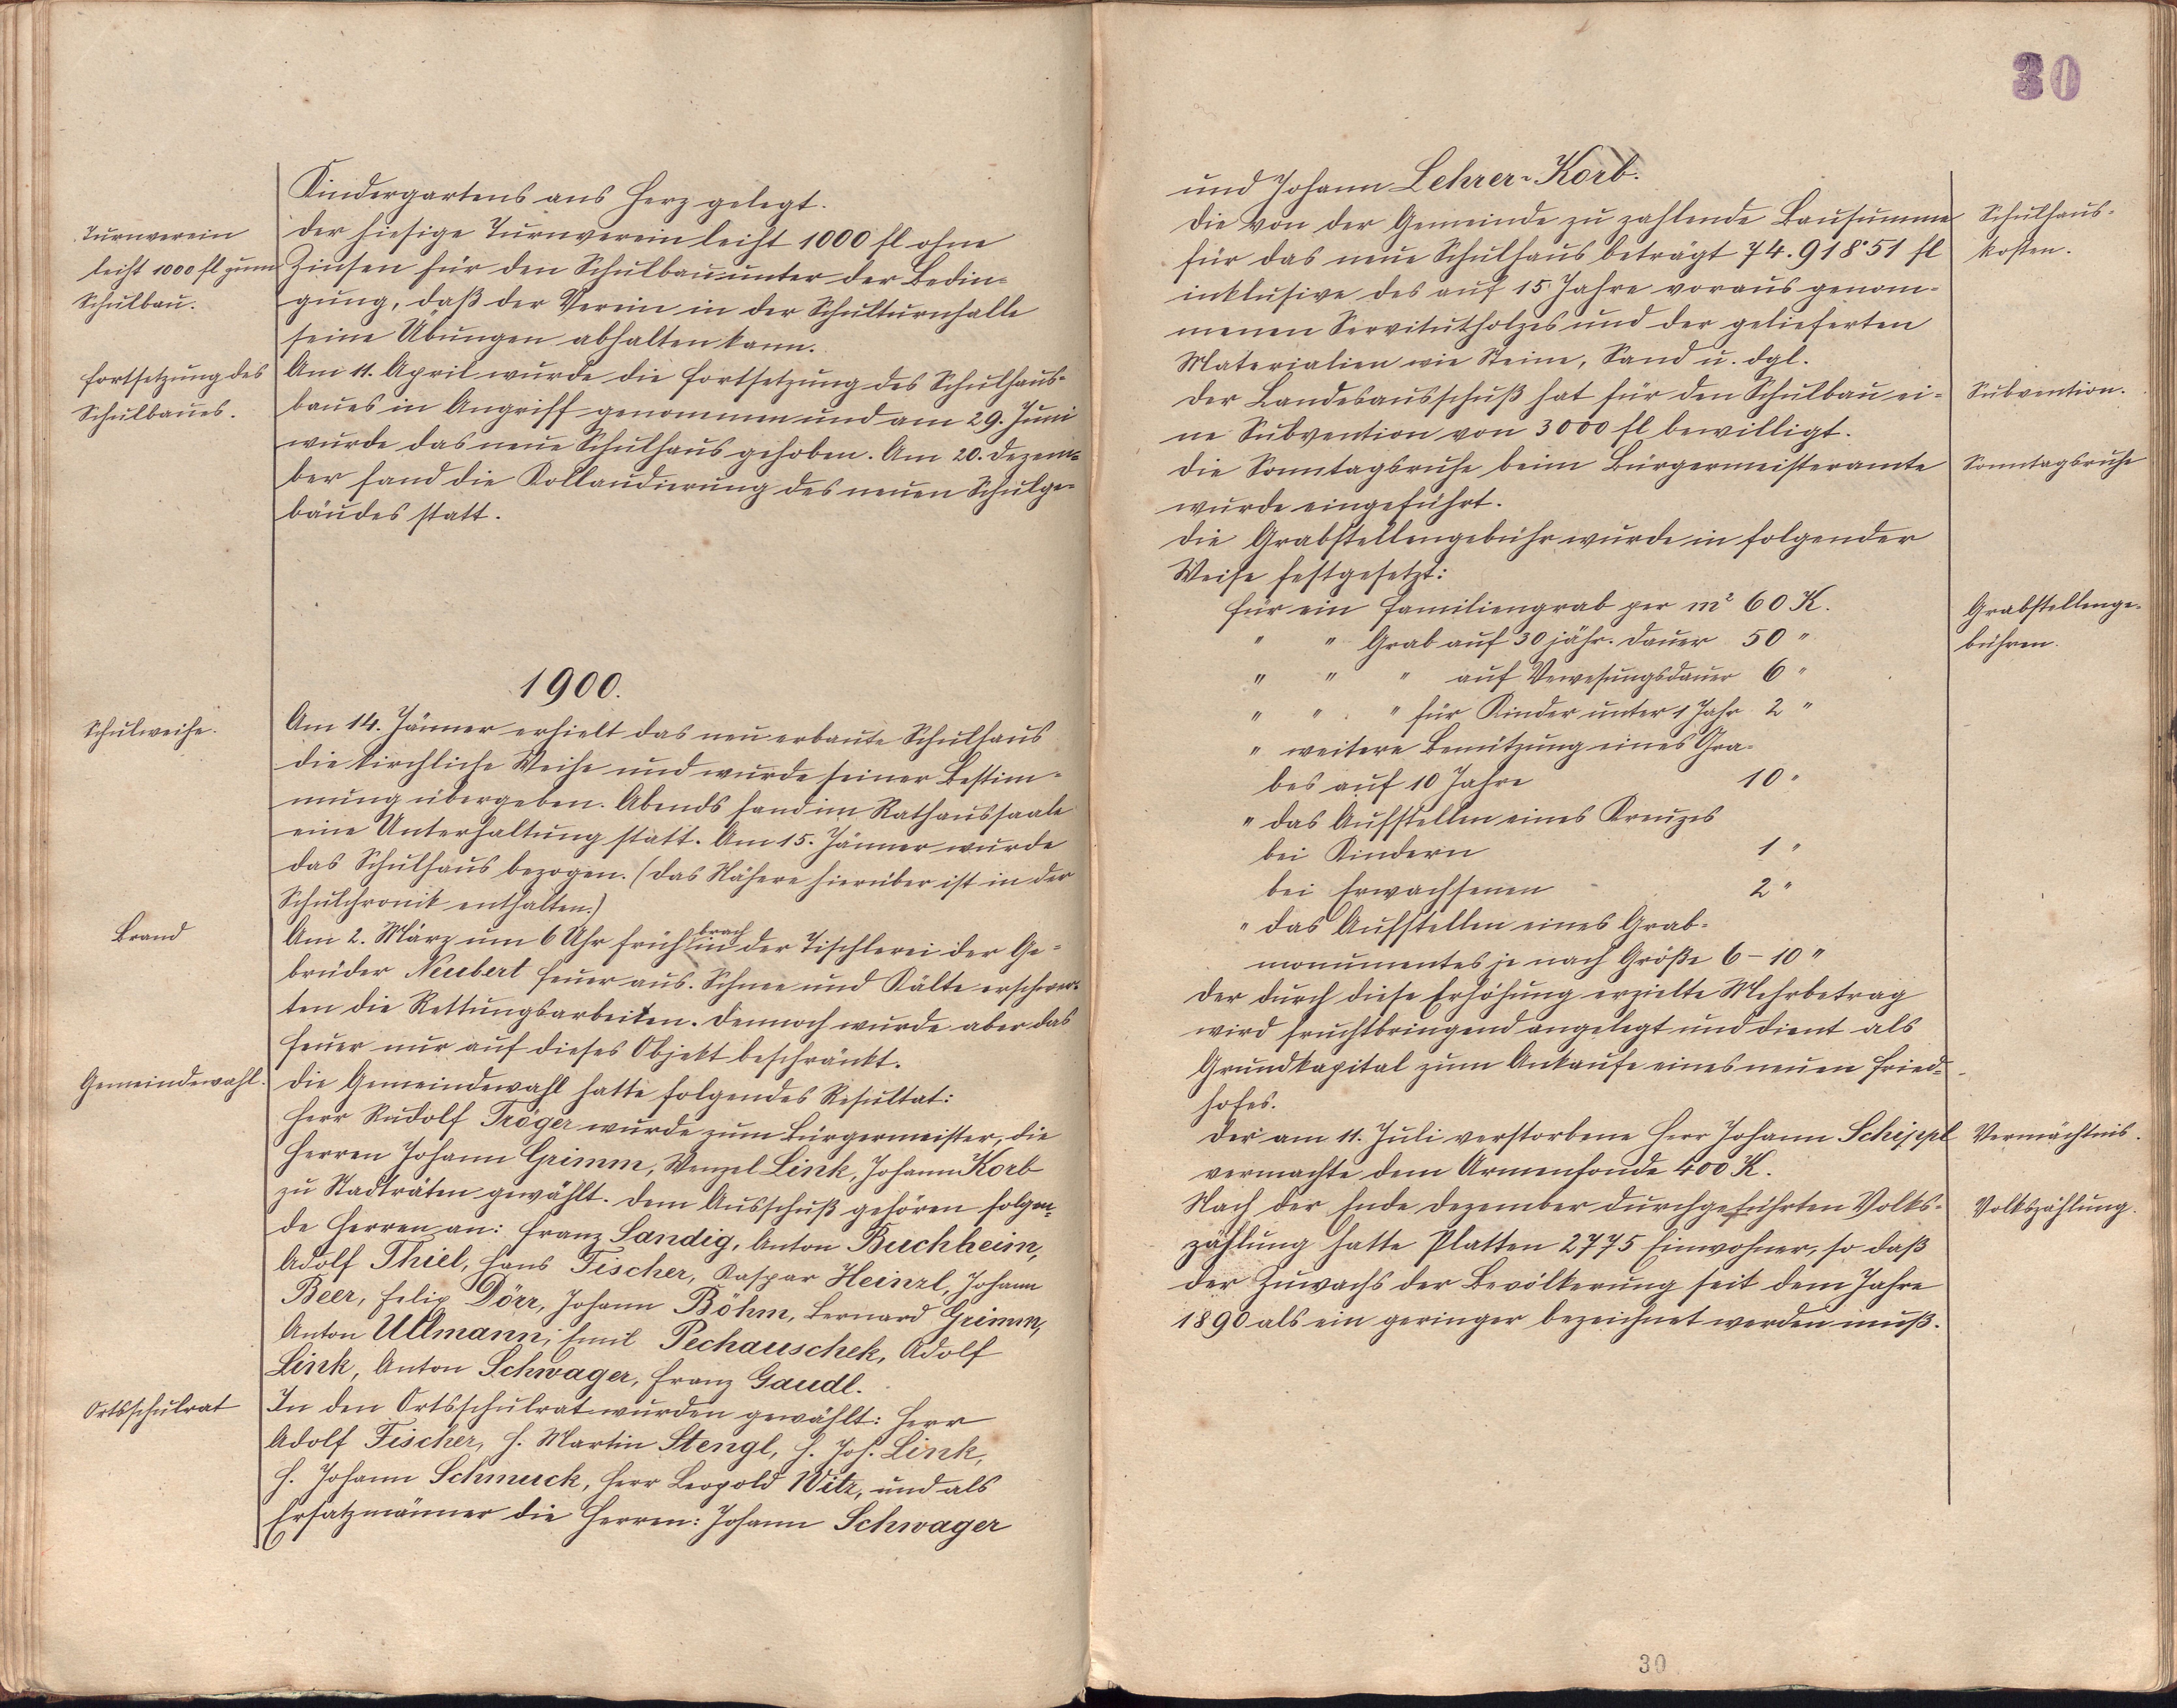 Kindergartens ans Herz gelegt.
Turnverein
leiht 1000 fl zum
Schulbau.
Der hiesige Turnverein leiht 1000 fl ohne
Zinsen für den Schulbau unter der Bedin-
gung, daß der Verein in der Schulturnhalle
seine Übungen abhalten kann.
Fortsetzung des
Schulbaues.
Am 11. April wurde die Fortsetzung des Schulhaus-
baues in Angriff genommen und am 29. Juni
wurde das neue Schulhaus gehoben. Am 20. Dezem-
ber fand die Kollaudierung des neuen Schulge-
bäudes statt.
1900.
Schulweihe.
Am 14. Jänner erhielt das neu erbaute Schulhaus
die kirchliche Weihe und wurde seiner Bestim-
mung übergeben. Abends fand im Rathaussaale
eine Unterhaltung statt. Am 15. Jänner wurde
das Schulhaus bezogen. (Das Nähere hierüber ist in der
Schulchronik enthalten.)
Brand
Am 2. März um 6 Uhr früh brach in der Tischlerei der Ge-
brüder Neubert Feuer aus. Schnee und Kälte erschwer-
ten die Rettungsarbeiten. Dennoch wurde aber das
Feuer nur auf dieses Objekt beschränkt.
Gemeindewahl.
Die Gemeindewahl hatte folgendes Resultat:
Herr Rudolf Tröger wurde zum Bürgermeister, die
Herren Johann Grimm, Wenzel Link, Johann Korb
zu Stadträten gewählt. Dem Ausschuß gehören folgen-
de Herren an: Franz Sandig, Anton Buchheim,
Adolf Thiel, Hans Fischer, Kaspar Heinzl, Johann
Beer, Felix Dörr, Johann Böhm, Bernard Grimm,
Anton Ullmann, Emil Pechauschek, Adolf
Link, Anton Schwager, Franz Gaudl.
Ortsschulrat
In den Ortsschulrat wurden gewählt: Herr
Adolf Fischer, H. Martin Stengl, H. Joh. Link,
H. Johann Schmuck, Herr Leopold Witz, und als
Ersatzmänner die Herren: Johann Schwager
30
und Johann Lehrer-Korb.
Die von der Gemeinde zu zahlende Bausumme
für das neue Schulhaus beträgt 74.918·51 fl
inklusive des auf 15 Jahre voraus genom-
menen Servitutholzes und der gelieferten
Materialien wie Steine, Sand u. dgl.
Schulhaus-
kosten.
Der Landesausschuß hat für den Schulbau ei-
ne Subvention von 3000 fl bewilligt.
Subvention.
Die Sonntagsruhe beim Bürgermeisteramte
wurde eingeführt.
Sonntagsruhe
Die Grabstellengebühr wurde in folgender
Weise festgesetzt:
Für ein Familiengrab per m² 60 K.
" " Grab auf 30 jähr. Dauer 50 "
" " " auf Verwesungsdauer 6 "
" " " für Kinder unter 1 Jahr 2 "
" weitere Benützung eines Gra-
bes auf 10 Jahre 10 "
" das Aufstellen eines Kreuzes
bei Kindern 1 "
bei Erwachsenen 2 "
" das Aufstellen eines Grab-
monumentes je nach Größe 6 - 10 "
Grabstellenge-
bühren.
Der durch diese Erhöhung erzielte Mehrbetrag
wird fruchtbringend angelegt und dient als
Grundkapital zum Ankaufe eines neuen Fried-
hofes.
Der am 11. Juli verstorbene Herr Johann Schippl
vermachte dem Armenfonde 400 K.
Vermächtnis.
Nach der Ende Dezember durchgeführten Volks-
zählung hatte Platten 2775 Einwohner, so daß
der Zuwachs der Bevölkerung seit dem Jahre
1890 als ein geringer bezeichnet werden muß.
Volkszählung.
30